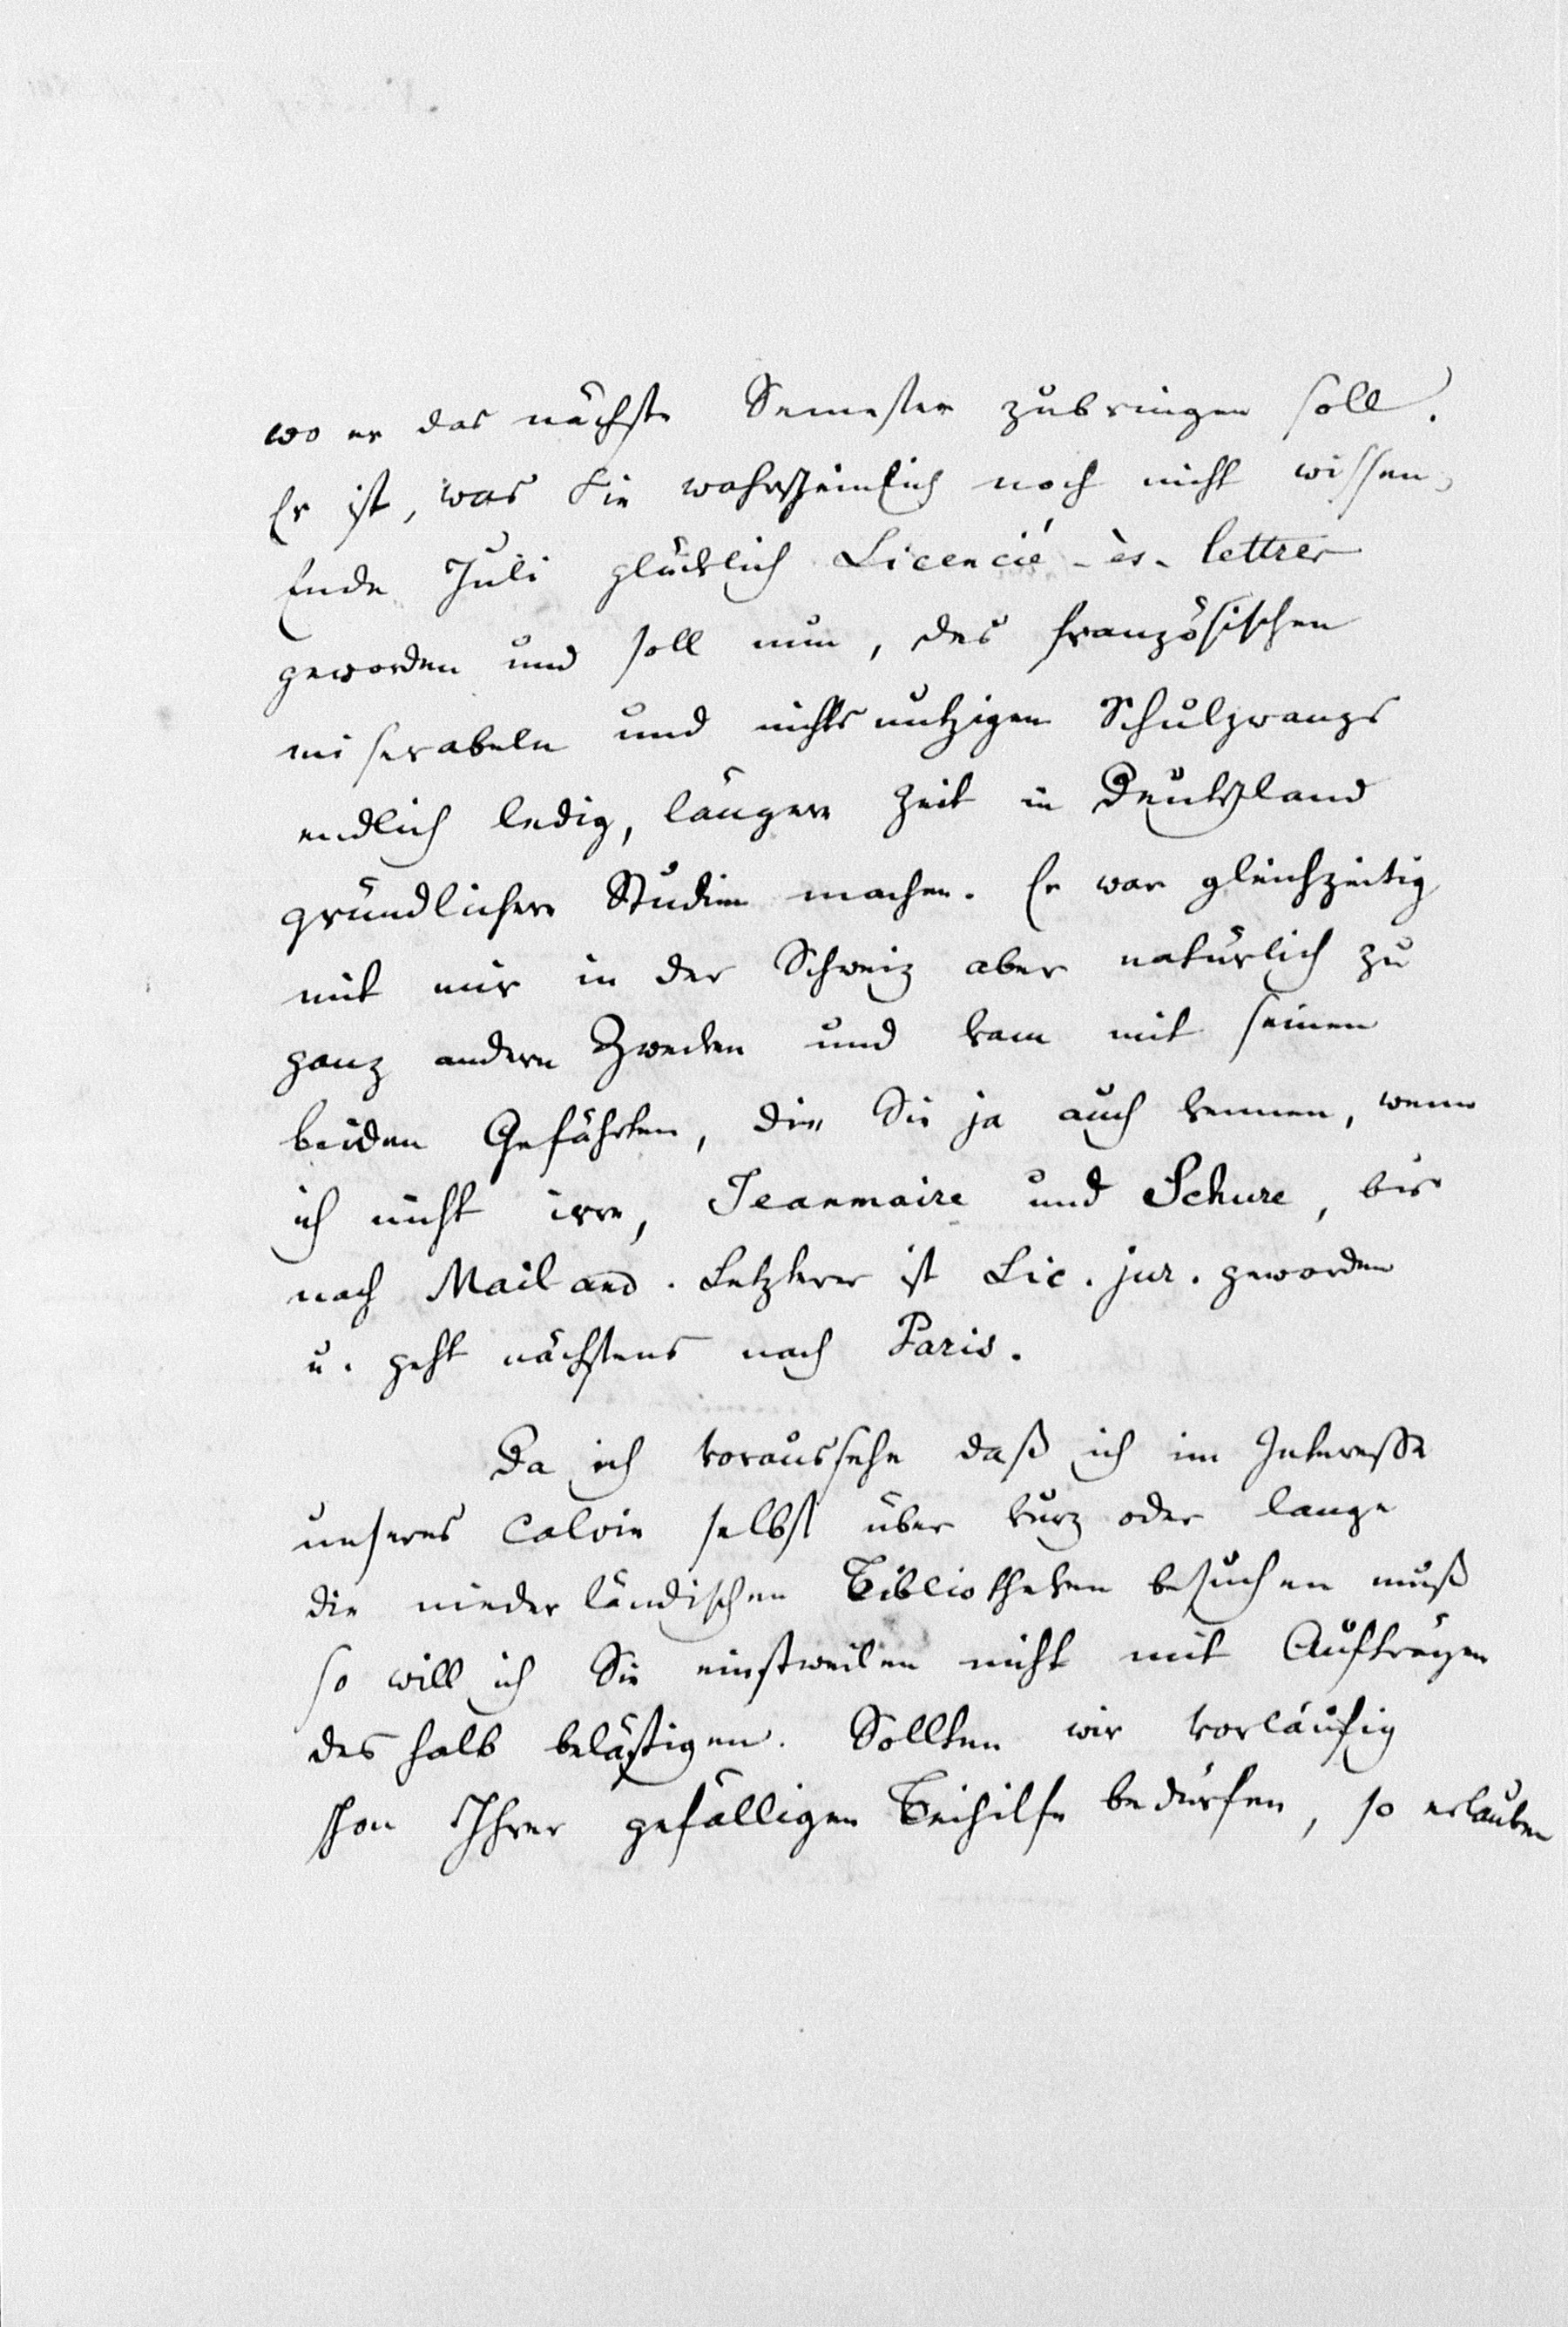 wo er das nächste Semester zubringen soll.
Er ist, was Sie wahrscheinlich noch nicht wissen,
Ende Juli glücklich Licencié-ès-lettres
geworden und soll nun, des französischen
miserabeln und nichtsnutzigen Schulzwangs
endlich ledig, längere Zeit in Deutschland
gründlichere Studien machen. Er war gleichzeitig
mit mir in der Schweiz aber natürlich zu
ganz andern Zwecken und kam mit seinen
beiden Gefährten, die Sie ja auch kennen, wenn
ich nicht irre, Jeanmaire und Schure, bis
nach Mailand. Letzterer ist Lic. jur. geworden
u. geht nächstens nach Paris.
Da ich voraussehe daß ich im Interesse
unseres Calvin selbst über kurz oder lange
die niederländischen Bibliotheken besuchen muß
so will ich Sie einstweilen nicht mit Aufträgen
deshalb belästigen. Sollten wir vorläufig
schon Ihrer gefälligen Beihilfe bedürfen, so erlauben